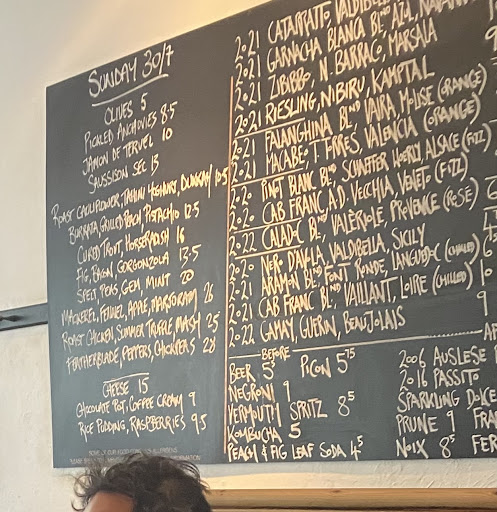 SUNDAY 30/7
OLIVES 5
PICKLED ANCHOVIES 8.5
JAMON DE TERUEL 10
SAUSSISON SEC 13
ROAST CAULIFLOWER, TAHINI YOGHURT, DUKKAH 10.5
BURRATA, GRILLED PEACH, PISTACHIO 12.5
CURED TROUT, HORSERADISH 16
FIG, BACON, GORGONZOLA 13.5
SPELT, PEAS, GEM, MINT 20
MACKEREL, FENNEL, APPLE, MARJORAM 26
ROAST CHICKEN, SUMMER TRUFFLE, MASH 25
FEATHERBLADE, PEPPERS, CHICKPEAS 28
CHEESE 15
CHOCOLATE POT, COFFEE CREAM 9
RICE PUDDING, RASPBERRIES 9.5
SOME OF OUR FOOD CONTAINS ALLERGENS
INFORMATION
2021 CATARRATTO, VALDIBELLA
2021 GARNACHA BLANCA BLND, AZUL
2021 ZIBIBBO, N. BARRACO, MARSALA
2021 RIESLING, NIBIRU, KAMPTAL
2021 FALANGHINA BLND
2021 MACABEO, VALENCIA (ORANGE)
2020 PINOT BLANC BLND, ALSACE (FIZZ)
2020 CAB FRANC, A.D. VECCHIA, VENETO (FIZZ)
2022 CALADOC BLND, VALÉRIOLE, PROVENCE (ROSÉ)
2020 NERO D'AVOLA, VALDIBELLA, SICILY
2021 ARAMON BLND, FONT RONDE, LANGUEDOC (CHILLED)
2021 CAB FRANC BLND, VAILLANT, LOIRE (CHILLED)
2022 GAMAY, GUERIN, BEAUJOLAIS
BEFORE
BEER 5 PICON 5.75
NEGRONI 9
VERMOUTH SPRITZ 8.5
KOMBUCHA 5
PEACH & FIG LEAF SODA 4.5
2006 AUSLESE
2016 PASSITO
SPARKLING DOLCE
PRUNE 9
NOIX 8.5